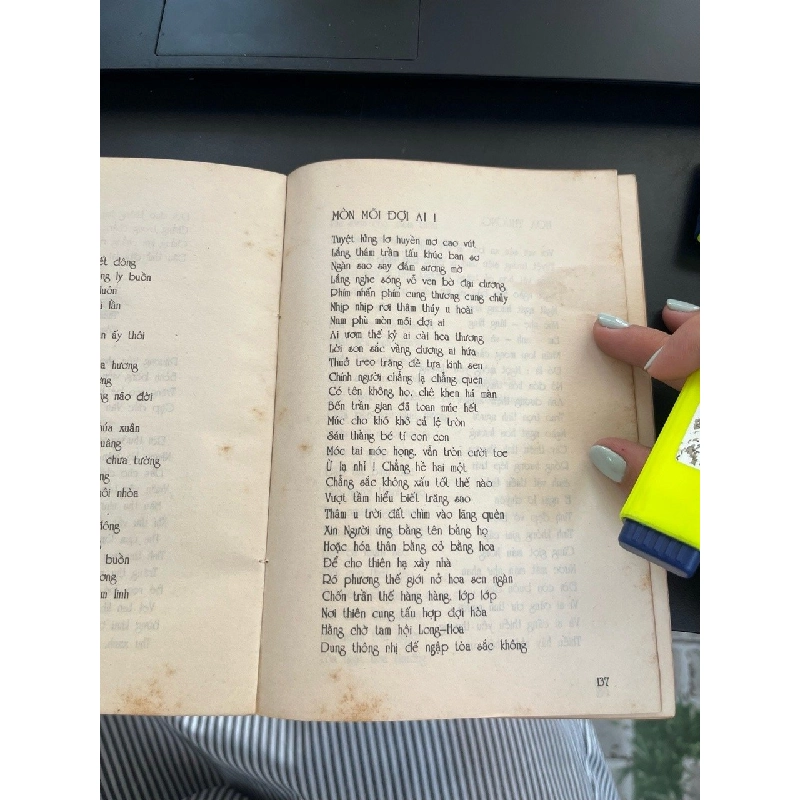 ết đông
ng ly buồn
luôn
i lần
n ấy thôi
a hương
ương
ng nào đời
úa xuân
uâng
chưa tường
g
ôi nhòa
đông
buồn
ương
m linh
MÒN MỎI ĐỢI AI !
Tuyệt lửng lơ huyền mơ cao vút
Lắng thầm trầm tấu khúc ban sơ
Ngàn sao say đắm sương mờ
Lắng nghe sóng vỗ ven bờ đại dương
Phím nhấn phím cung thương cung chảy
Nhịp nhịp rơi thâm thúy u hoài
Nam phù mòn mỏi đợi ai
Ai ươm thế kỷ ai cài hoa thương
Lời son sắc vàng dương ai hứa
Thuở treo trăng để tựa lánh sen
Chính người chẳng lạ chẳng quen
Có tên không họ, chê khen há màn
Bến trần gian đã toan múc hết
Múc cho khô khô cả lệ tròn
Sáu thằng bé tí con con
Móc tai móc họng, vẫn tròn cười toe
Ừ lạ nhỉ ! Chẳng hề hai một
Chẳng sắc không xấu tốt thế nào
Vượt tầm hiểu biết trăng sao
Thâm u trời đất chìm vào lãng quên
Xin Người ứng bằng tên bằng họ
Hoặc hóa thân bằng cỏ bằng hoa
Để cho thiên hạ xây nhà
Rõ phương thế giới nở hoa sen ngàn
Chốn trần thế hàng hàng, lớp lớp
Nơi thiên cung tấu hợp đợi hòa
Hằng chờ tam hội Long-Hoa
Dung thông nhị đế ngập tòa sắc không
137